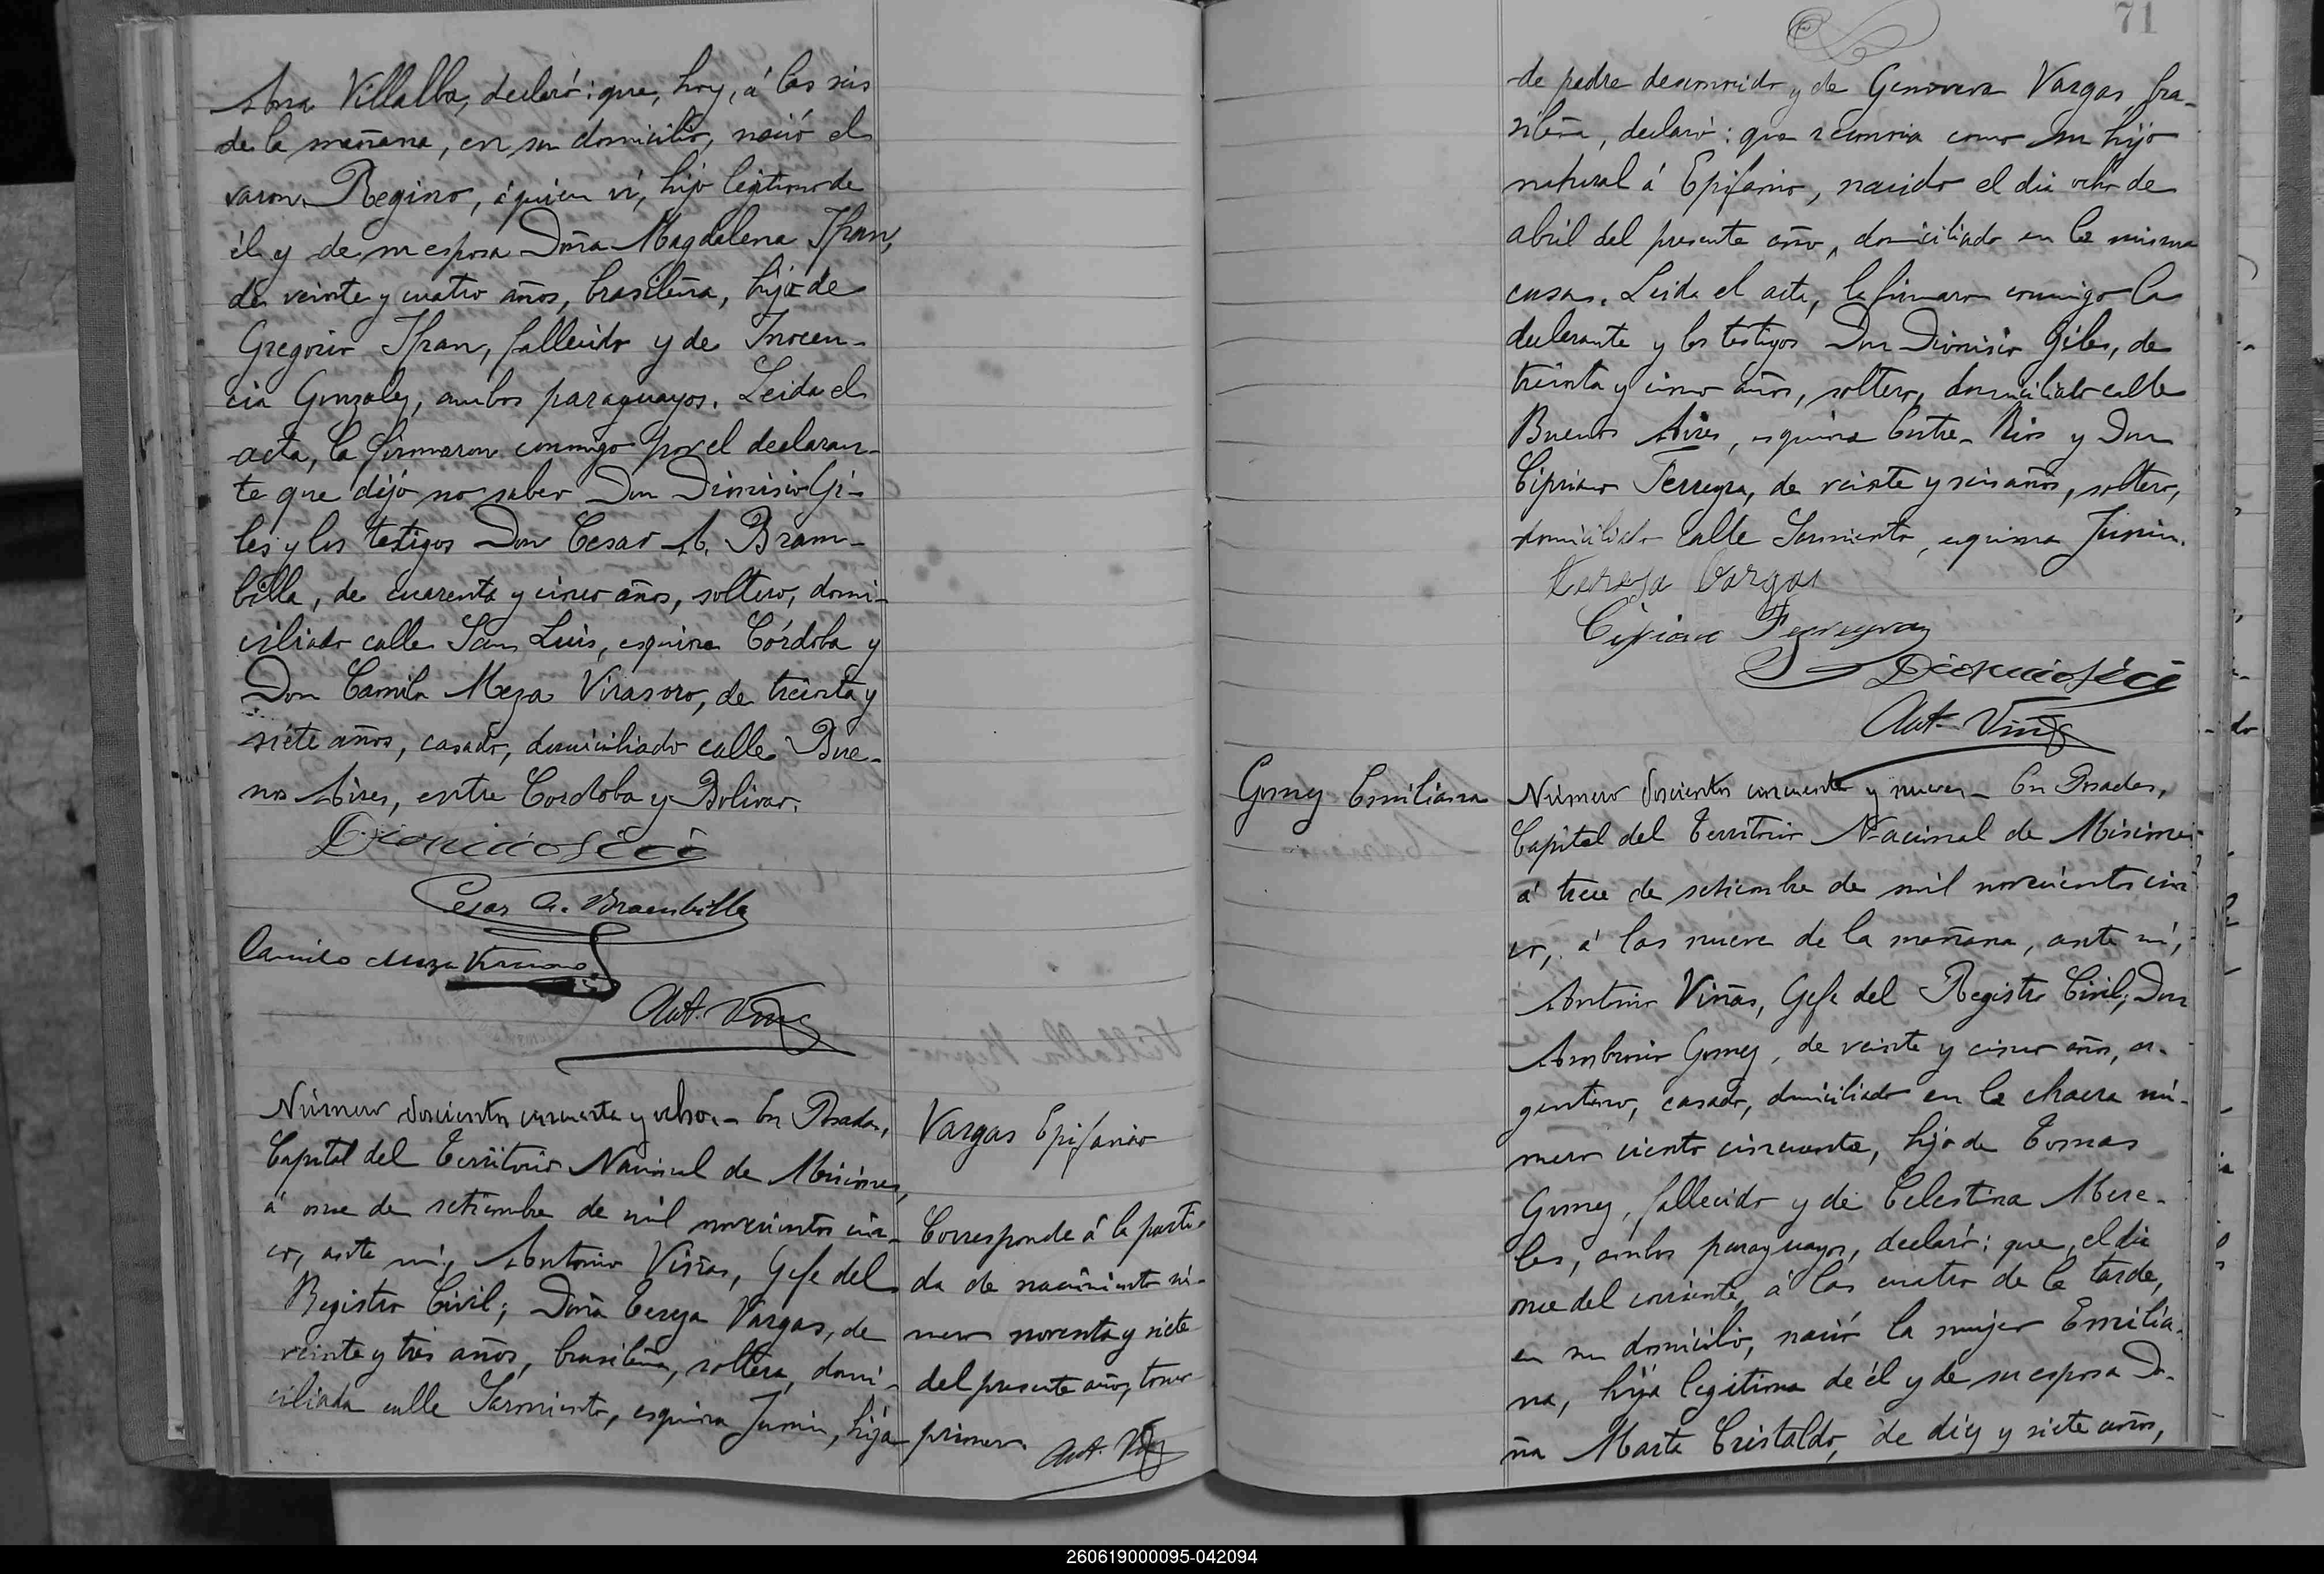 Ana Villalba, declaró: que, hoy, á las seis
de la mañana, en su domicilio, nació el
varon Regino, á quien ví, hijo legitimo de
él y de su esposa Doña Magdalena Ifran,
de veinte y cuatro años, brasileña, hija de
Gregorio Ifran, fallecido y de Inocen-
cia Gonzalez, ambos paraguayos. Leida el
acta, la firmaron conmigo por el declaran-
te que dijó no saber Don Dionisio Gi-
les y los testigos Don Cesar A. Bram-
billa, de cuarenta y cinco años, soltero, domi-
ciliado calle San Luis, esquina Córdoba y
Don Camilo Meza Virasoro, de treinta y
siete años, casado, domiciliado calle Bue-
nos Aires, entre Cordoba y Bolivar.
Dionicio Giles
Cesar A. Brambilla
Camilo Meza Virasoro
Ant. Viñas
Número doscientos cincuenta y ocho.- En Posadas,
Capital del Territorio Nacional de Misiones,
á once de setiembre de mil novecientos cin-
co, ante mí, Antonio Viñas, Gefe del
Registro Civil; Doña Tereza Vargas, de
veinte y tres años, brasileña, soltera, domi-
ciliada calle Sarmiento, esquina Junin, hija
Vargas Epifanio
Corresponde á la parti-
da de nacimiento nú-
mero noventa y siete
del presente año, tomo
primero.
Ant. Viñas
71
de padre desconocido y de Genoveva Vargas bra-
sileña, declaró: que reconocia como su hijo
natural á Epifanio, nacido el dia ocho de
abril del presente año, domiciliado en la misma
casa. Leida el acta, la firmaron conmigo la
declarante y los testigos Don Dionisio Giles, de
treinta y cinco años, soltero, domiciliado calle
Buenos Aires, esquina Entre-Rios y Don
Cipriano Ferreyra, de veinte y seis años, soltero,
domiciliado calle Sarmiento, esquina Junin.
tereza Vargas
Cipriano Ferreyra
Dionicio Giles
Ant. Viñas
Gomez Emiliana
Número doscientos cincuenta y nueve.- En Posadas,
Capital del Territorio Nacional de Misiones
á trece de setiembre de mil novecientos cin
co, á las nueve de la mañana, ante mí,
Antonio Viñas, Gefe del Registro Civil; Don
Ambrosio Gomez, de veinte y cinco años, ar-
gentino, casado, domiciliado en la chacra nú-
mero ciento cincuenta, hijo de Tomas
Gomez, fallecido y de Celestina Mere-
les, ambos paraguayos, declaró: que, el dia
once del corriente, á las cuatro de la tarde,
en su domicilio, nació la mujer Emilia-
na, hija legitima de él y de su esposa Do-
ña Marta Cristaldo, de diez y siete años,
260619000095-042094